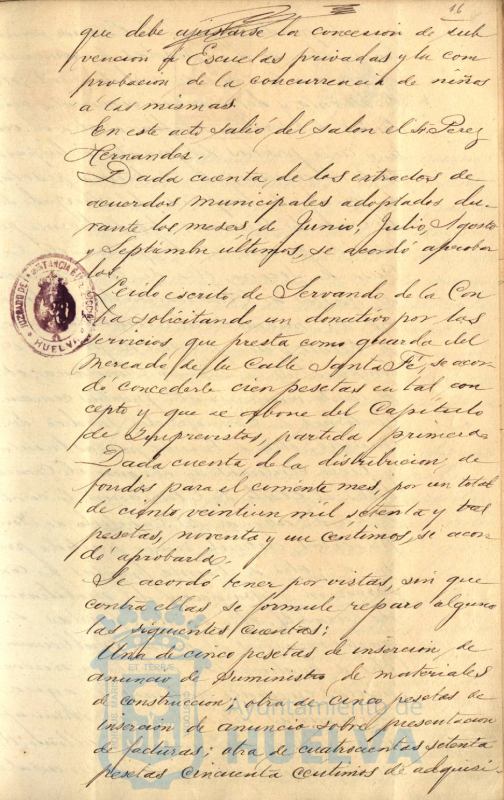 16
que debe ajustarse la concesion de sub
vención á Escuelas privadas y la com
probacion de la concurrencia de niños
a las mismas.
En este acto salió del salon el Sr Perez
Hernandez.
Dada cuenta de los extractos de
acuerdos municipales adoptados du-
rante los meses de Junio, Julio, Agosto
y Septiembre ultimos, se acordó aprobar
los.
Leido escrito de Servando de la Con
cha solicitando un donativo por los
servicios, que presta como guarda del
Mercado de la Calle Santa Fé, se acor
dó concederle cien pesetas en tal con
cepto y que se abone del Capitulo
de Imprevistos, partida primera.
Dada cuenta de la distribucion de
fondos para el corriente mes, por un total
de ciento veintiun mil setenta y tres
pesetas, noventa y un centimos, se acor
dó aprobarla.
Se acordó tener por vistas, sin que
contra ellas se formule reparo alguno
las siguientes cuentas:
Una de cinco pesetas de insercion de
anuncio de suministro de materiales
de construccion; otra de cinco pesetas de
insercion de anuncio sobre presentacion
de facturas; otra de cuatrocientas setenta
pesetas cincuenta centimos de adquisi-
JUZGADO DE 1ª INSTANCIA E INSTRUCCION
HUELVA
ET TERRÆ
Ayuntamiento de
HUELVA